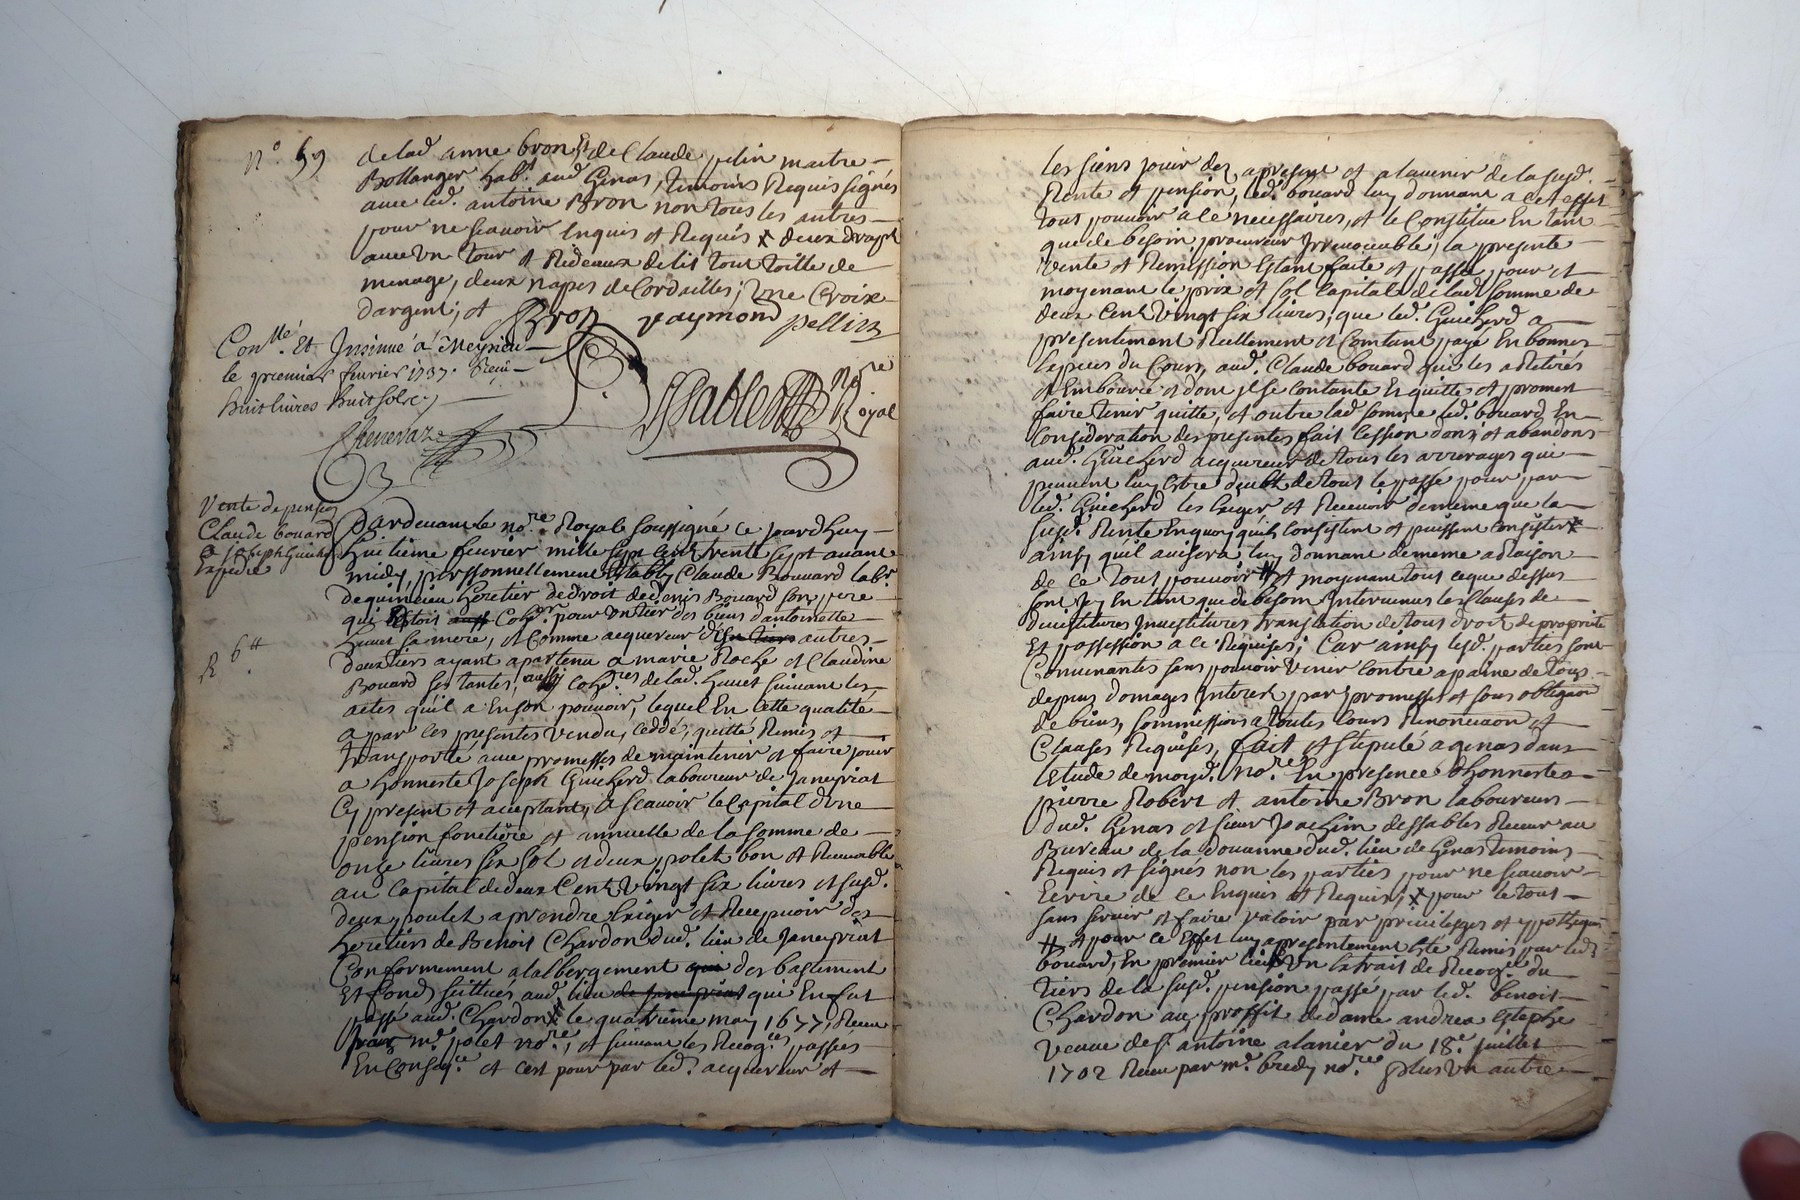 N.º 59
delad. anne bron, et de Claude pelin maitre
Bollanger hab.t aud. Genas, temoins Requis signés
avec led. antoine Bron non tous les autres
pour ne scavoir Enquis et Requis x deux draps
avec un tour et Rideaux de lit tout toille de
menage, deux napes de Cordailles; Une Croix
dargent; et Bron raymond pellin
Con.llé Et Insinué á Meyzieu
le premier fevrier 1737. Reçu
huit livres huit sols
Chenevaz
DSables No.re Royal
Vente de pension
Claude bouard
a Joseph Guicherd
Expedié
R 6.tt
Pardevant le no.re Royal soussigné ce jourdhuy
huitieme fevrier mille sept cent trente sept avant
midy, personnellement Estably Claude Bouvard lab.r
de heretier de droit de denis Bouard son pere
qui Estoit Cohe.r pour un tier des biens dantoinette
huvet sa mere, et Comme acquereur des autres
deux tiers ayant apartenu a marie Roche et Claudine
Bouard ses tantes, aussy Cohe.res de lad. huvet suivant les
actes quil a En son pouvoir, lequel En Cette qualité
a par Ces presentes Vendu, Ceddé, quitté Remis et
transporté avec promesses de maintenir et faire jouir
a honneste Joseph Guicherd laboureur de Janeyriat
Cy present et acceptant, a scavoir le Capital dune
pension fonciére et annuelle de la somme de
onze livres six sol et deux polet bon et Recevable
au Capital de deux Cent Vingt six livres et susd.
deux poulet a prendre Exiger et Recepvoir des
heretiers de Benoit Chardon dud. lieu de Janeyriat
Conformement a lalbergement des bastiment
Et fonds scittués aud. lieu de Janeyriat qui En fut
passé aud. Chardon le quatrieme may 1677, Receu
par m.e polet no.re, et suivant les Recog.ces passées
En Conseq.ce et cest pour par led. acquereur et
les siens jouir dez a present et a lavenir de la susd.
Rente et pension, led. bouard luy donnant a cet effet
tout pouvoir a ce necessaires, et le Constitue En tant
que de besoin procureur Irrevocable, la presente
Vente et Remission Estant faite et passée pour et
moyenant le prix et sol Capital de lad. somme de
deux Cent Vingt six livres, que led. Guicherd a
presentement Reellement et Comtant payé En bonnes
Especes du Cours, aud. Claude bouard qui les a Retirés
et Emboursé et dont il se contante En quitte et promet
faire tenir quitte, et outre lad. somme led. bouard En
Consideration des presentes fait Cession dons et abandons
aud. Guicherd acquereur de tous les arrerages que
peuvent luy Estre deubt de tout le passé pour par
led. Guicherd les Exiger et Recevoir de meme que la
susd. Rente En quoy quils Consistent et puissent Consister x
ainsy quil avisera luy donnant de meme a Raison
de ce tout pouvoir # et moyenant tout ce que dessus
sont Icy En tant que de besoin Intervenus les Clauses de
devestitures Investitures translation de tous droit de proprieté
Et possession a ce Requises; Car ainsy lesd. parties sont
Convenantes sans pouvoir venir Contre a paine de tous
depens domages Interest, par promesses et sous obligaon
de biens, soummissions a toutes Cours Renonciaon et
Clauses Requises, fait et stepulé a genas dans
letude de moyd. no.re En presence dhonnestes
pierre Robert et antoine Bron laboureurs
dud. Genas et sieur Joachim dessables Receveur au
Bureau de la douanne dud. lieu de Genas temoins
Requis et signés non les parties pour ne scavoir
Ecrire de ce Enquis et Requis, x pour le tout
sans servir et faire valoir par privileges et ypotheques
# et pour ce Effet luy a presentement Esté Remis par led.
bouard, En premier lieu Un Extrait de Recog.ce du
tiers de la susd. pension passé par led. benoit
Chardon au proffit de dame andrea Estephe
veuve de s.r antoine alanier du 18.e juillet
1702 Receu par m.e bredy no.re plus un autre